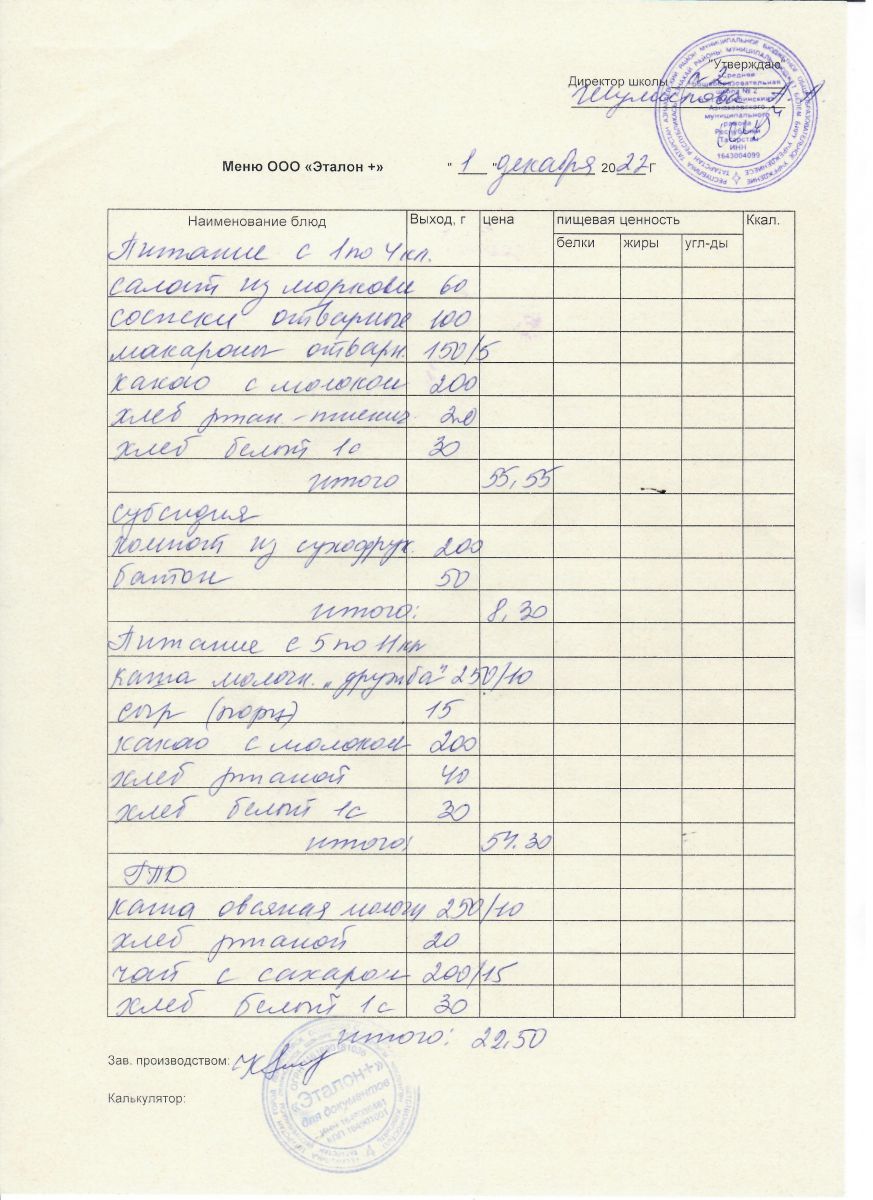 "Утверждаю"
Директор школы с 2
Средняя
общеобразовательная
школа № 2
Азнакаевского
муниципального
района
Республики
Татарстан
ИНН
1643004099
Меню ООО «Эталон +» " 1 " декабря 2022 г
Наименование блюд Выход, г цена пищевая ценность Ккал.
белки жиры угл-ды
Питание с 1 по 4 кл.
салат из моркови 60
сосиски отварные 100
макароны отварн. 150/5
какао с молоком 200
хлеб ржан.-пшенич. 20
хлеб белый 1с 30
итого 55,55
субсидия
компот из сухофрук. 200
батон 50
итого: 8,30
Питание с 5 по 11 кл
каша молочн. „дружба" 250/10
сыр (порц) 15
какао с молоком 200
хлеб ржаной 40
хлеб белый 1с 30
итого: 54.30
ГПД
каша овсяная молочн 250/10
хлеб ржаной 20
чай с сахаром 200/15
хлеб белый 1с 30
итого: 22,50
Зав. производством:
Калькулятор:
«Эталон+»
для документов